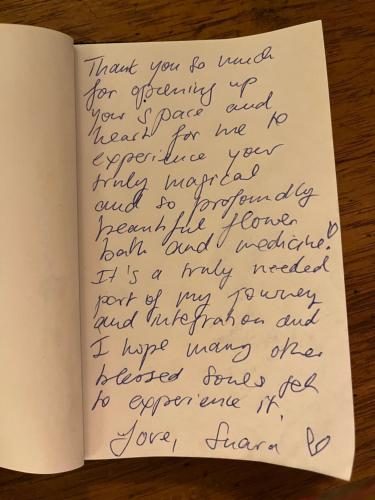 Thank you so much
for opening up
your space and
heart for me to
experience your
truly magical
and so profoundly
beautiful flower
bath and medicine!
It's a truly needed
part of my journey
and integration and
I hope many other
blessed souls get
to experience it.
Love,